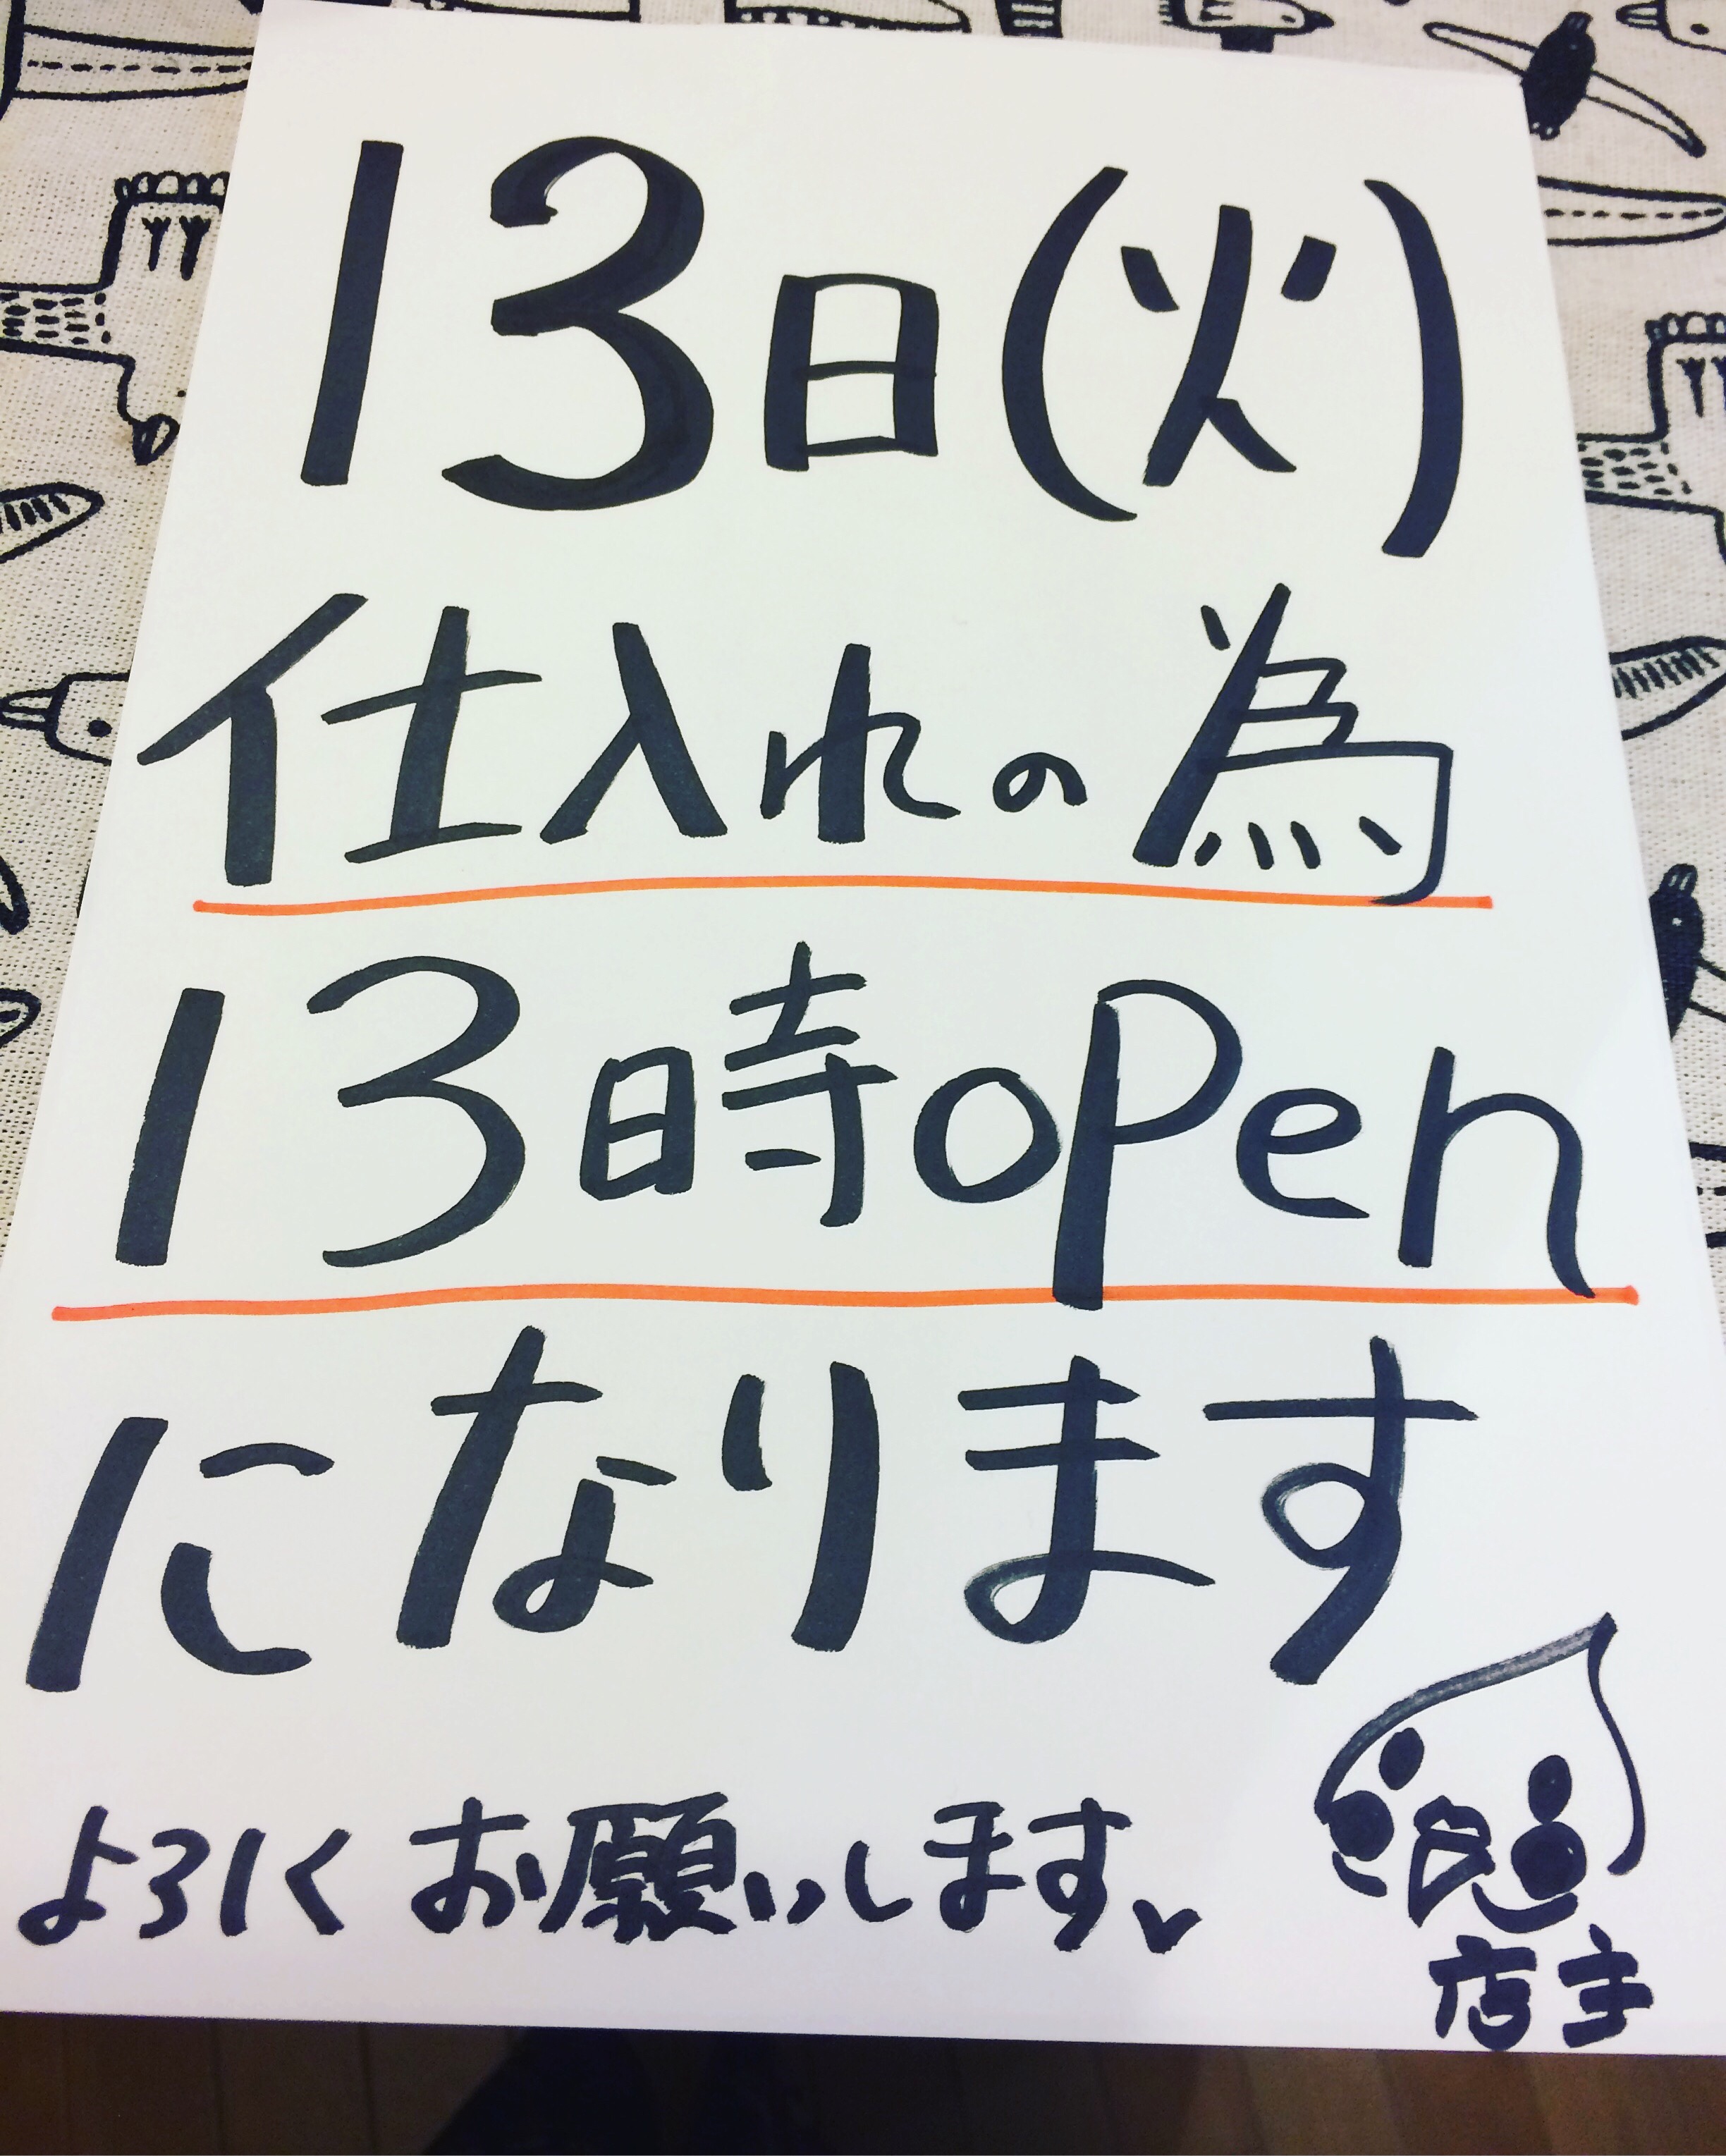 13日(火)
仕入れの為
13時open
になります
よろしくお願いします
店主